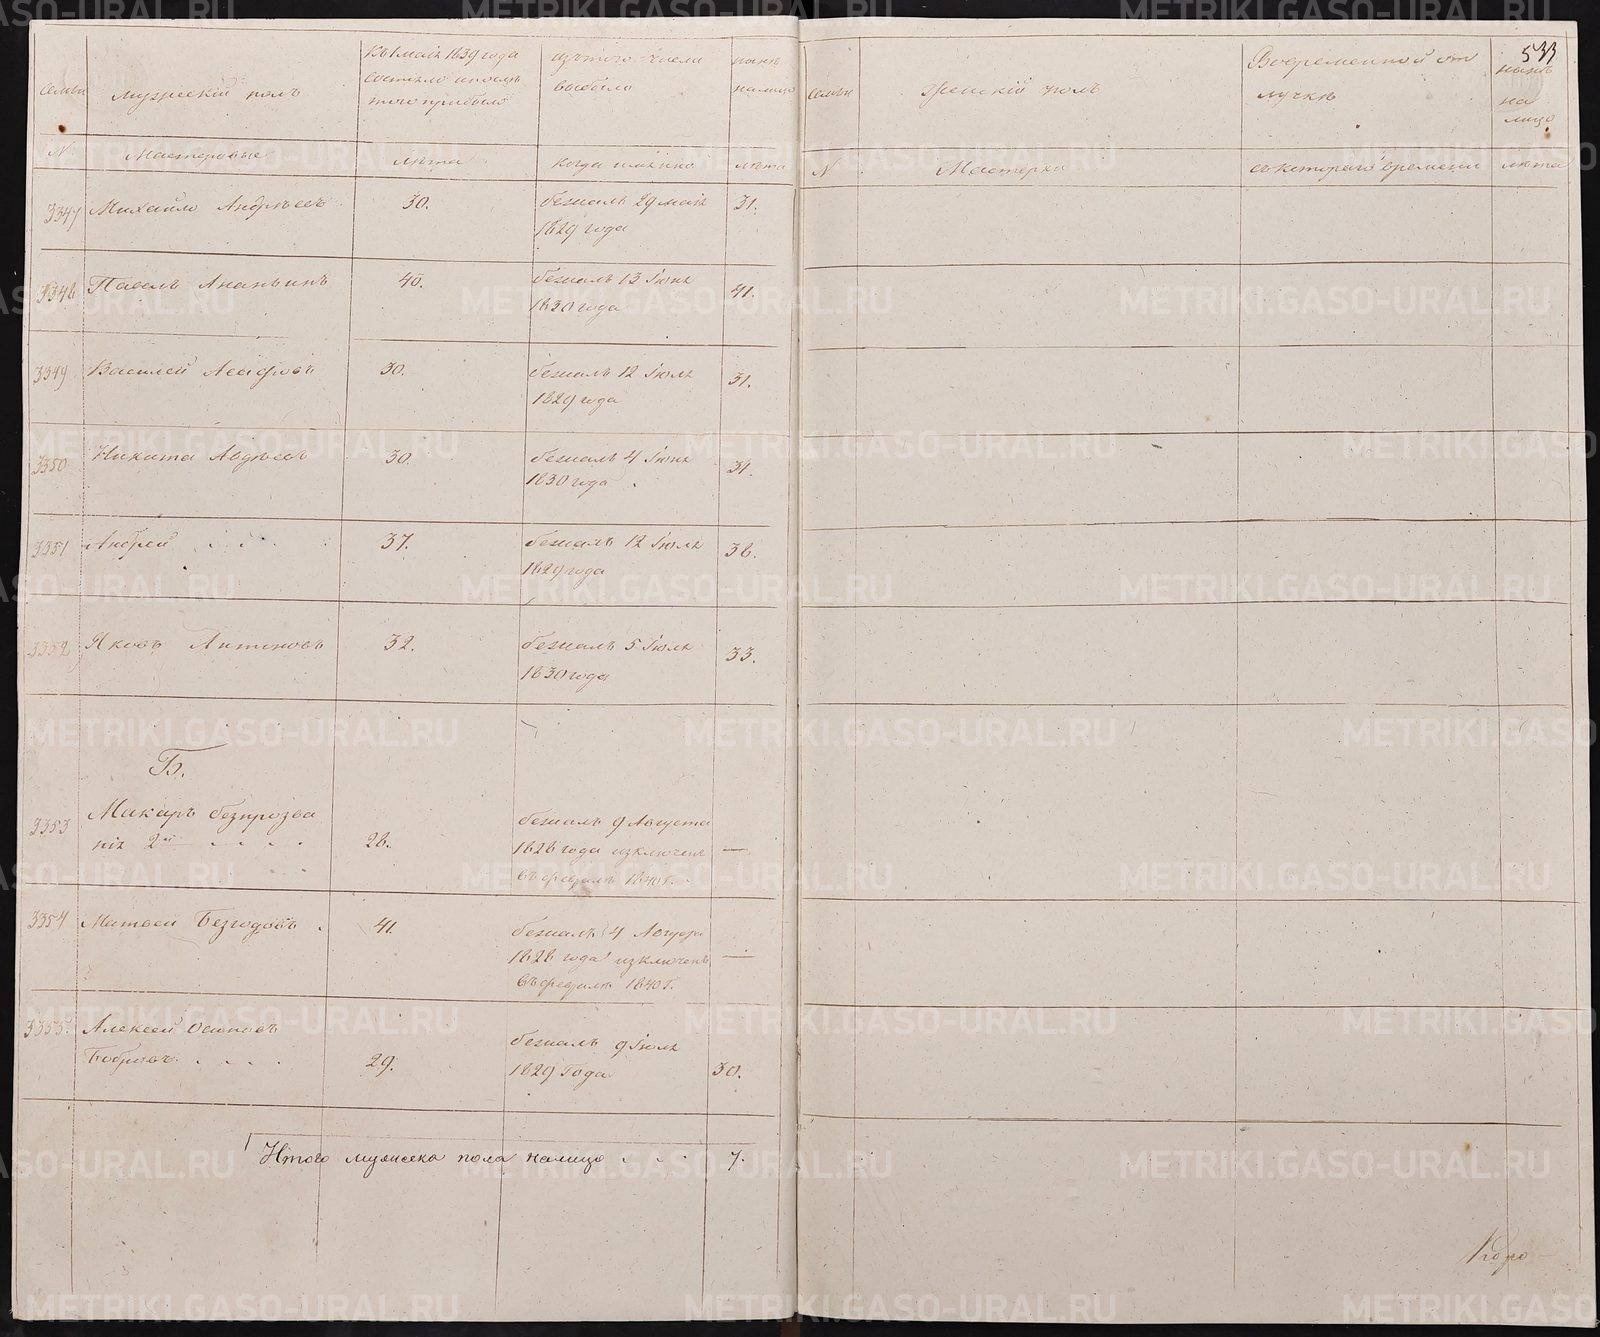 семьи
мужескій полъ
къ 1 маія 1839 года
состояло и послѣ
того прибыло
изъ того числа
выбыло
нынѣ
на лицо
N
Мастеровые
лѣта
когда имянно
лѣта
3347
Михайло Андрѣевъ
30.
бежалъ 29 маія
1829 года
31.
3348
Павелъ Ананьинъ
40.
бежалъ 13 Іюня
1830 года
41.
3349
Василей
30.
бежалъ 12 Іюля
1829 года
31.
3350
Никита Авдѣевъ
30.
бежалъ 4 Іюня
1830 года
31.
3351
Андрей . . .
37.
бежалъ 12 Іюля
1829 года
38.
3352
Яковъ Антоновъ
32.
бежалъ 5 Іюля
1830 года
33.
Б.
3353
Макаръ безпрозва
нія 2й . . . .
28.
бежалъ 9 Августа
1828 года изключенъ
въ февралѣ 1840 г.
—
3354
Матвей Безгодовъ .
41.
бежалъ 4 Августа
1828 года изключенъ
въ февралѣ 1840 г.
—
3355.
Алексей Осиповъ
Бобровъ . . . .
29.
бежалъ 9 Іюля
1829 Года
30.
Итого мужска пола налицо . . . 7.
533
семьи
женскій полъ
Во временной от
лучкѣ
нынѣ
на
лицо
N
Мастерки
съ котораго времени
лѣта
METRIKI.GASO-URAL.RU